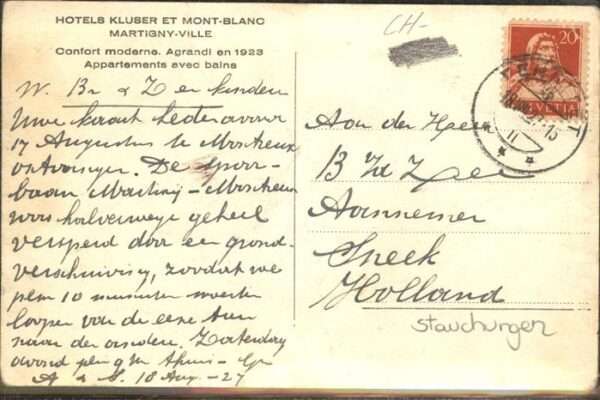 HOTELS KLUSER ET MONT-BLANC
MARTIGNY-VILLE
Confort moderne. Agrandi en 1923
Appartements avec bains
W. Br & Z en kinderen
Uwe kaart hedenavond
17 Augustus te Montreux
ontvangen. De spoor-
baan Martiny - Montreux
was halverwege geheel
versperd door een grond-
verschuiving, zoodat we
plm 10 minuten moesten
loopen van de eene tram
naar de andere. Zaterdag
avond plm 9 u thuis. Gr
A & S. 18 Aug - 27
CH-
20
HELVETIA
Aan den Heer
B
Aannemer
Sneek
Holland
stauchungen